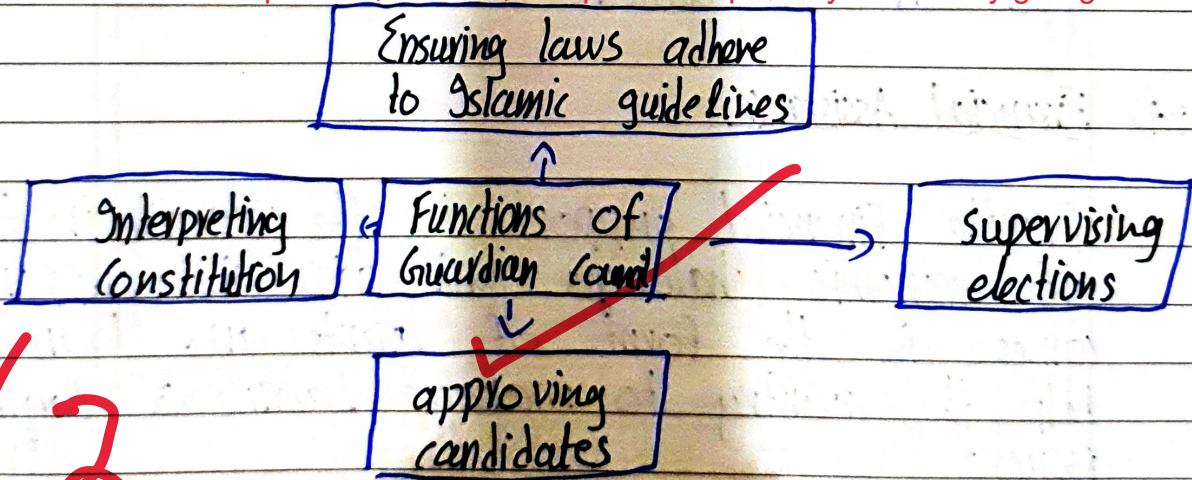 Ensuring laws adhere
to Islamic guidelines
Interpreting
Constitution
Functions of
Guardian Council
supervising
elections
approving
candidates
2